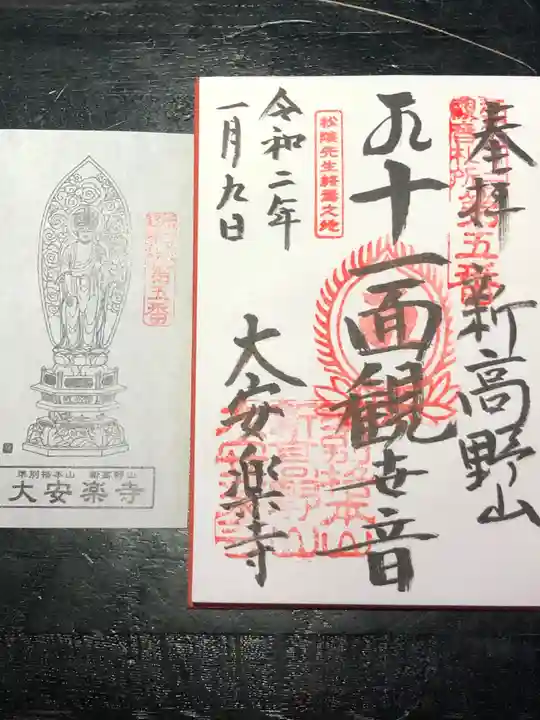 奉拝
新高野山
十一面観世音
松陰先生終焉之地
令和二年
一月九日
大安楽寺
準別格本山 新高野山
大安楽寺